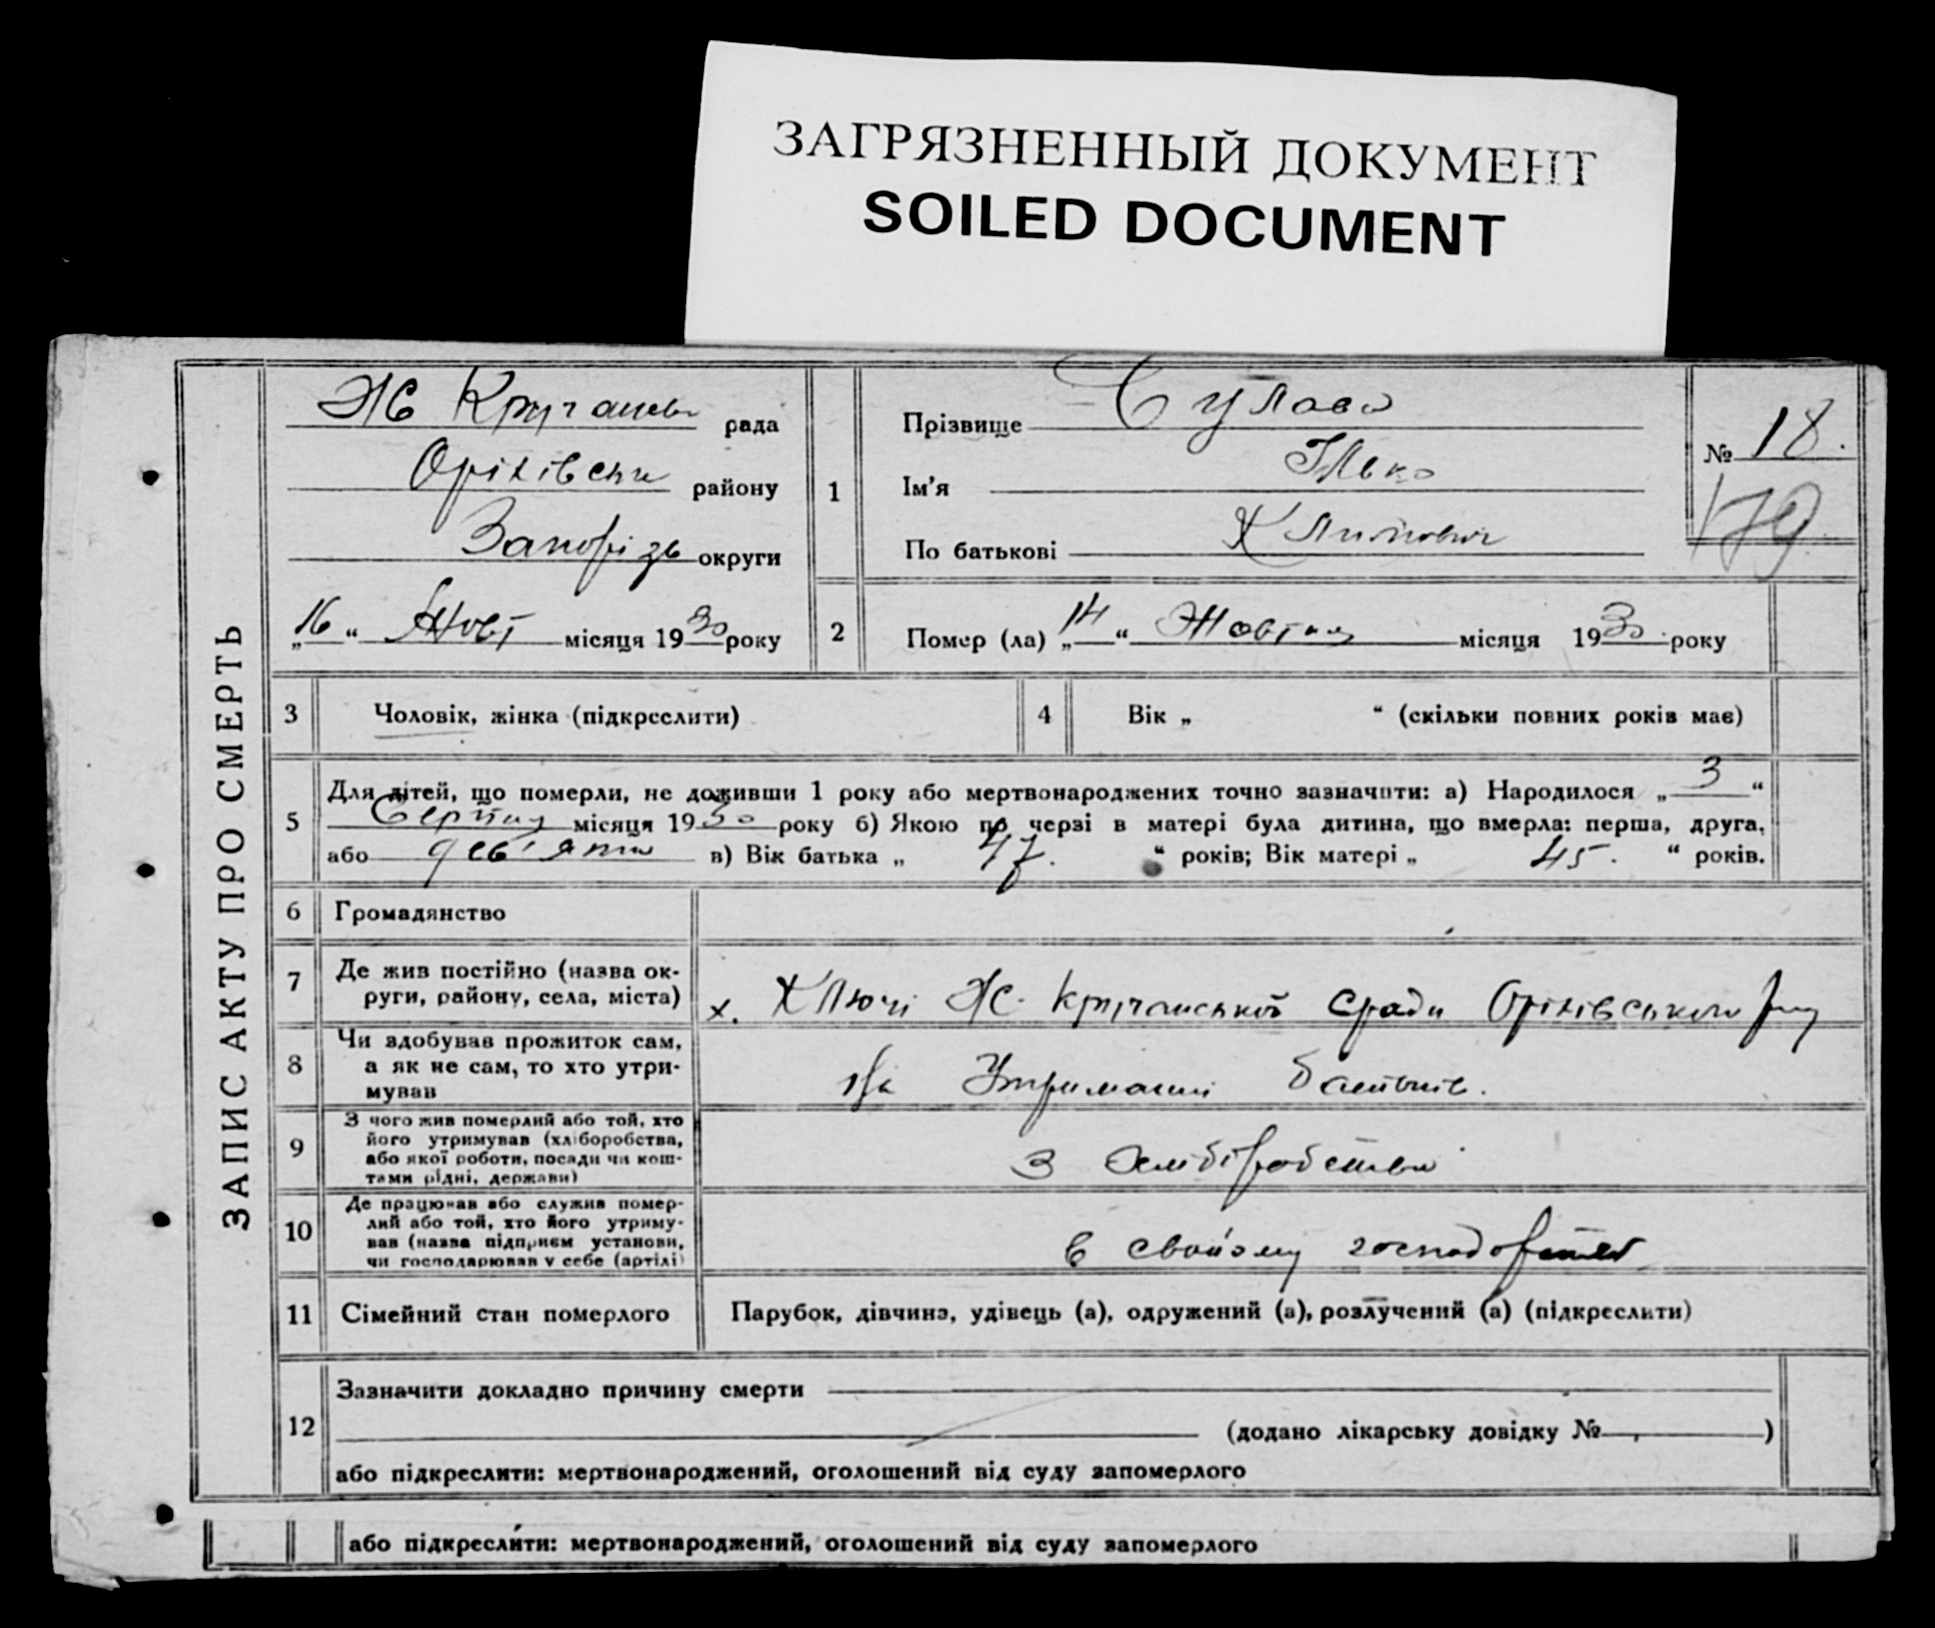 ЗАГРЯЗНЕННЫЙ ДОКУМЕНТ
SOILED DOCUMENT
ЗАПИС АКТУ ПРО СМЕРТЬ
рада
Оріхівськ району
Запорізь округи
„16“ Жовт місяця 1930 року
1
Прізвище
Ім'я Ілько
По батькові
№ 18.
179
2
Помер (ла) „14“ Жовтня місяця 1930 року
3
Чоловік, жінка (підкреслити)
4
Вік „ “ (скільки повних років має)
5
Для дітей, що померли, не доживши 1 року або мертвонароджених точно зазначити: а) Народилося „3“
Серпня місяця 1930 року б) Якою по черзі в матері була дитина, що вмерла: перша, друга,
або дев'ята в) Вік батька „47.“ років; Вік матері „45.“ років.
6
Громадянство
7
Де жив постійно (назва ок-
руги, району, села, міста)
х. Ключі Ж. Кручанської с/ради Оріхівського р-ну
8
Чи здобував прожиток сам,
а як не сам, то хто утри-
мував
на Утриманні батьків.
9
З чого жив померлий або той, хто
його утримував (хліборобства,
або якої роботи, посади чи кош-
тами рідні, держави)
З хліборобства
10
Де працював або служив помер-
лий або той, хто його утриму-
вав (назва підприєм установи,
чи господарював у себе (артілі)
в свойому господарстві
11
Сімейний стан померлого
Парубок, дівчина, удівець (а), одружений (а), розлучений (а) (підкреслити)
12
Зазначити докладно причину смерти
(додано лікарську довідку № )
або підкреслити: мертвонароджений, оголошений від суду запомерлого
або підкреслити: мертвонароджений, оголошений від суду запомерлого